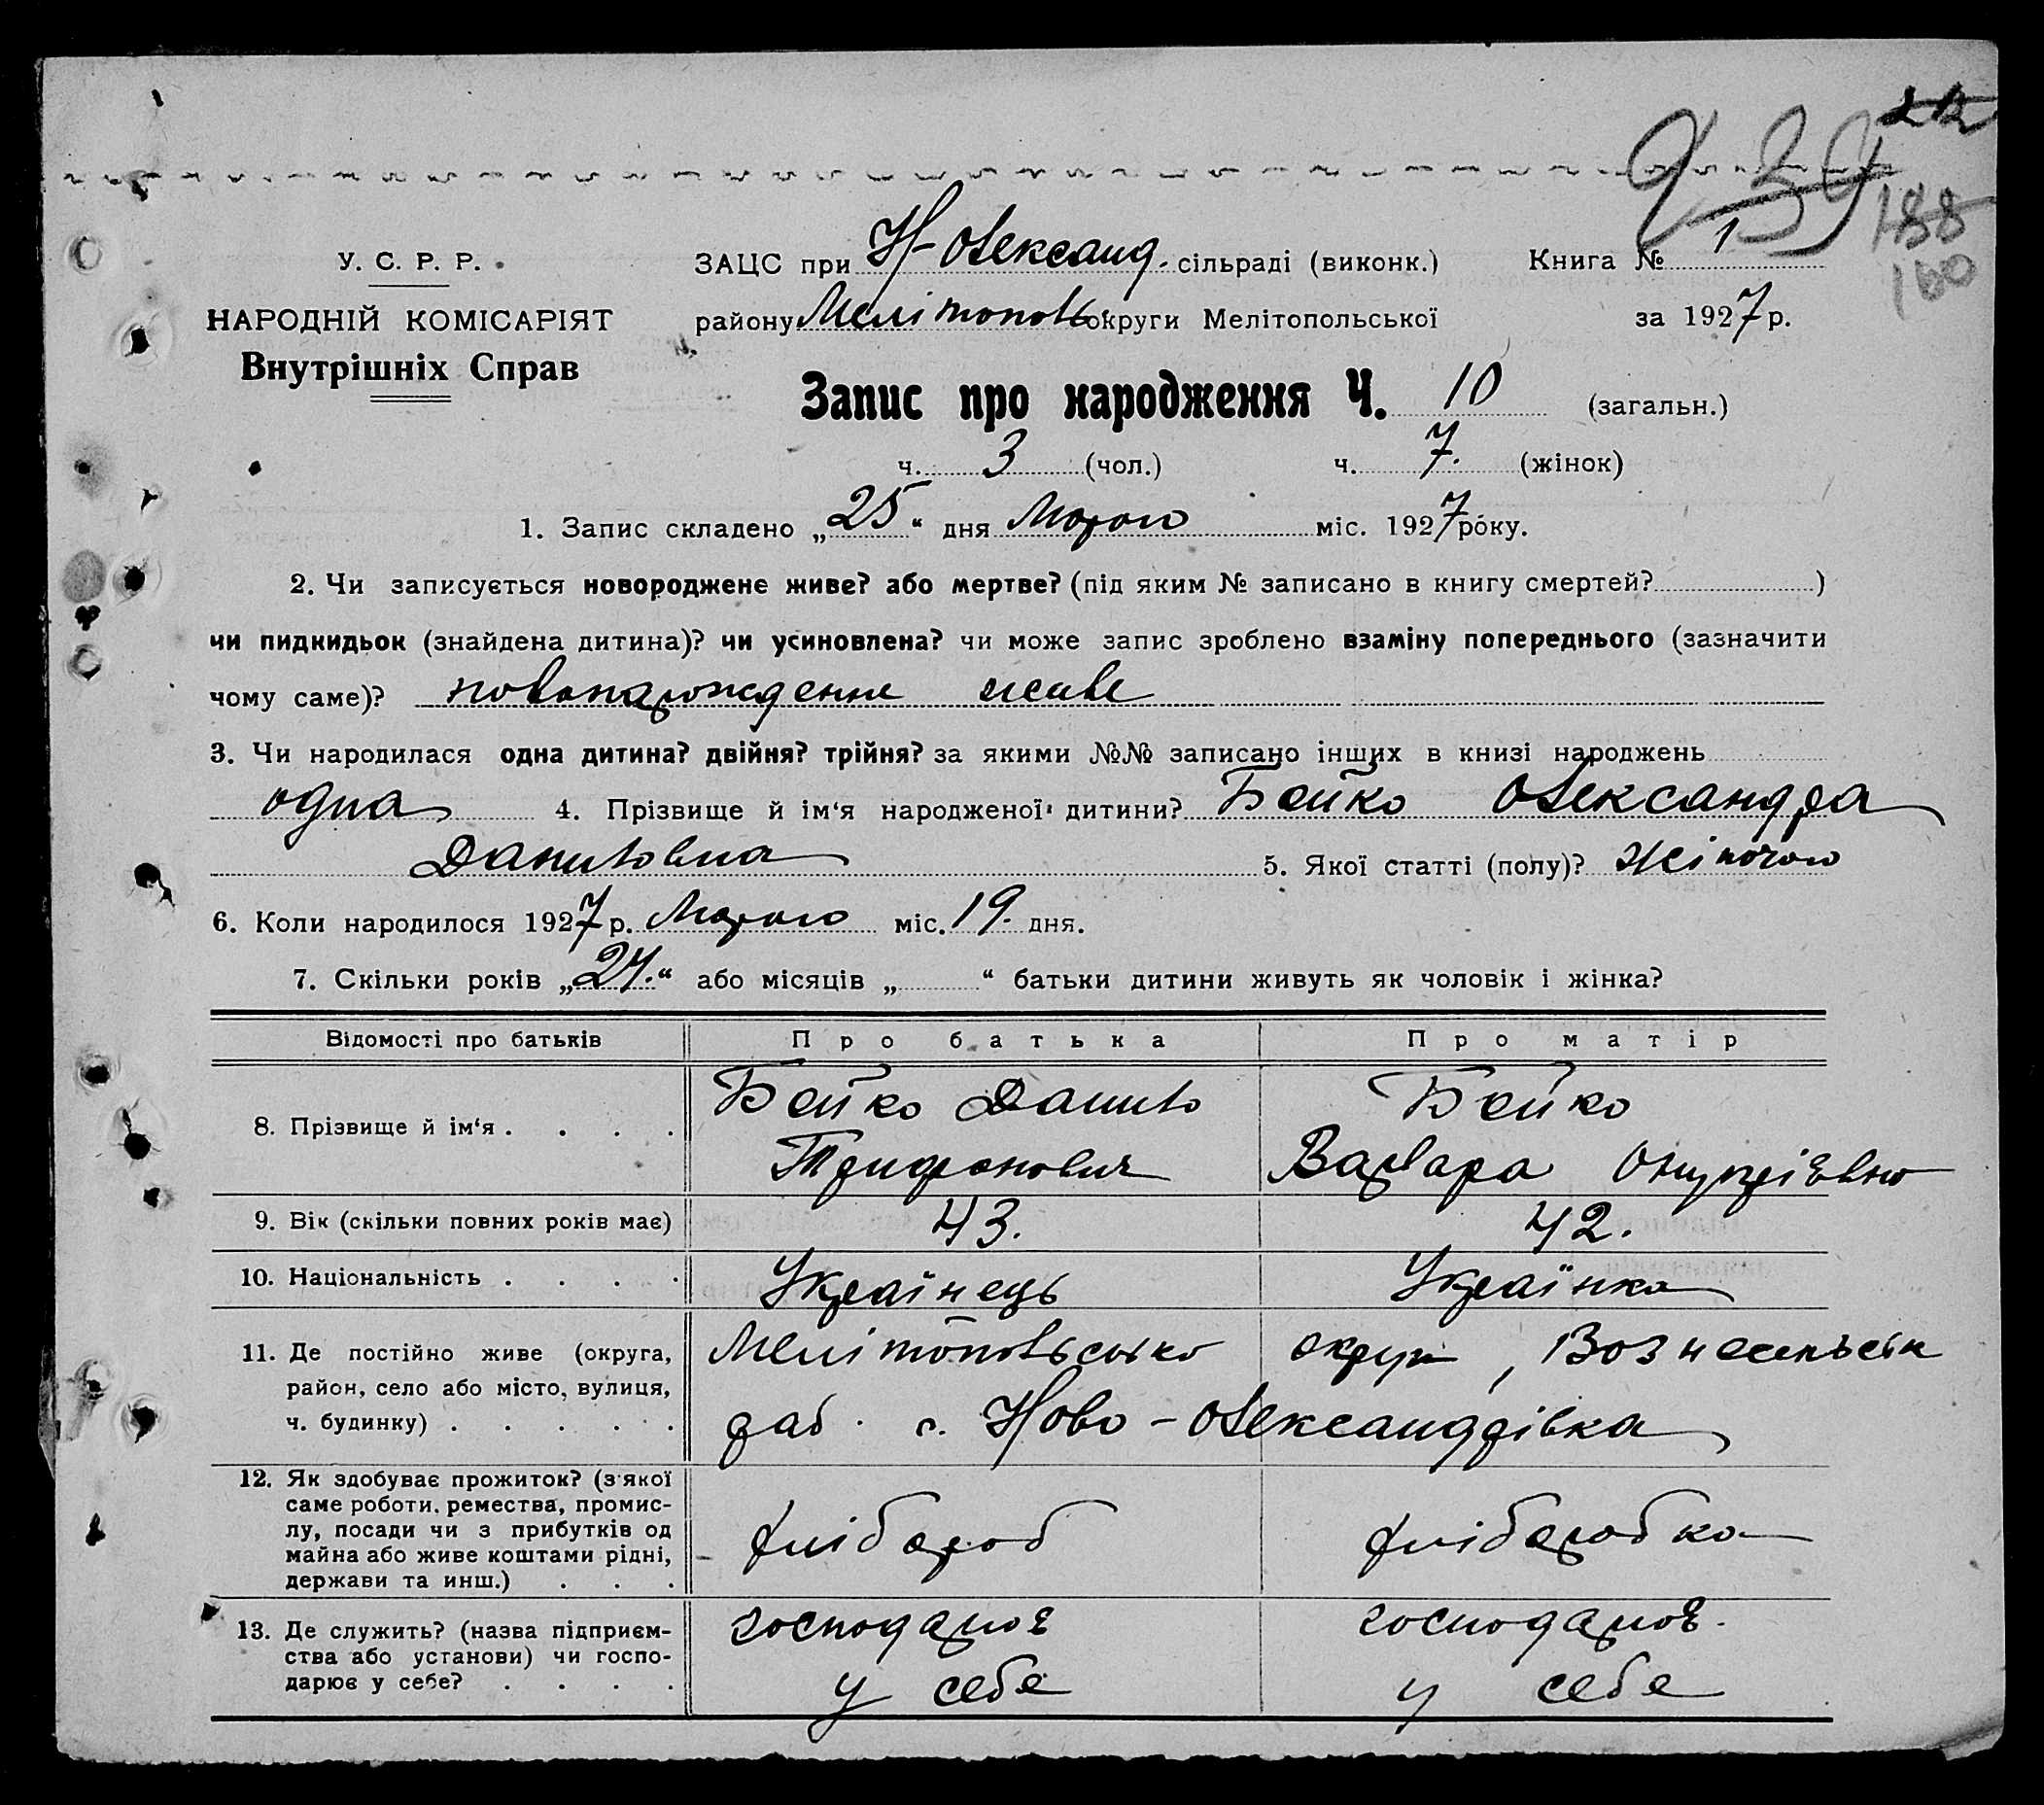 212
239
188
160
У. С. Р. Р.
НАРОДНІЙ КОМІСАРІЯТ
Внутрішніх Справ
ЗАЦС при Н-Олександ. сільраді (виконк.) Книга № 1
району Мелітополь округи Мелітопольської за 1927 р.
Запис про народження Ч. 10 (загальн.)
ч. 3 (чол.) ч. 7. (жінок)
1. Запис складено „25“ дня Марта міс. 1927 року.
2. Чи записується новороджене живе? або мертве? (під яким № записано в книгу смертей? )
чи пидкидьок (знайдена дитина)? чи усиновлена? чи може запис зроблено взаміну попереднього (зазначити
чому саме)? новонарожденне живе
3. Чи народилася одна дитина? двійня? трійня? за якими №№ записано інших в книзі народжень
одна 4. Прізвище й ім‘я народженої дитини? Бойко Олександра
Даниловна 5. Якої статті (полу)? Жіночого
6. Коли народилося 1927 р. Марта міс. 19. дня.
7. Скільки років „24.“ або місяців „ “ батьки дитини живуть як чоловік і жінка?
Відомості про батьків Про батька Про матір
8. Прізвище й ім‘я . . . . Бойко Данило Бойко
Трифонович Варвара Онупріївна
9. Вік (скільки повних років має) 43. 42.
10. Національність . . . . Українець Українка
11. Де постійно живе (округа, район, село або місто, вулиця, ч. будинку) . . . . . Мелітопольсько округи, Вознесенськ
раб. с. Ново-Олександрівка
12. Як здобуває прожиток? (з якої саме роботи, ремества, промислу, посади чи з прибутків од майна або живе коштами рідні, держави та инш.) . . . хлібороб хліборобка
13. Де служить? (назва підприємства або установи) чи господарює у себе? . . . . господарює господарює.
у себе у себе